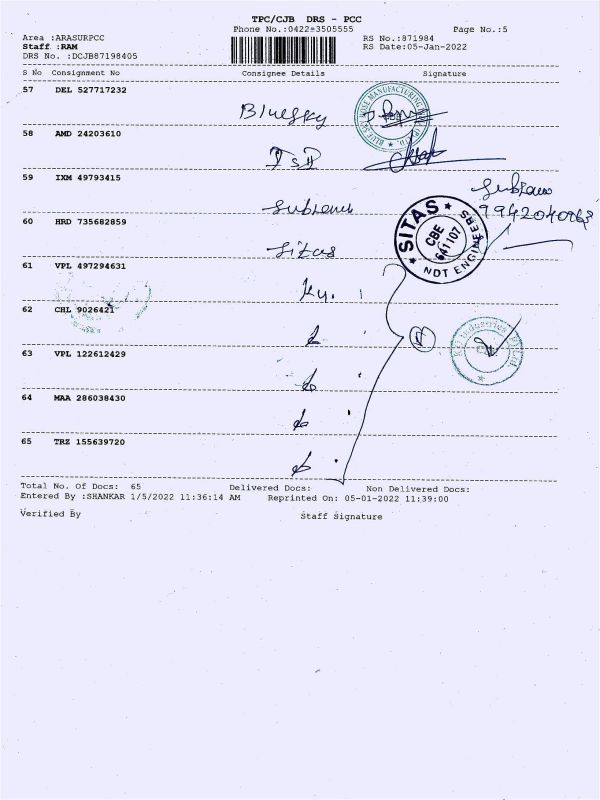 TPC/CJB DRS - PCC
Phone No.:0422=3505555 Page No.:5
Area :ARASURPCC RS No.:871984
Staff :RAM RS Date:05-Jan-2022
DRS No. :DCJB87198405
S No Consignment No Consignee Details Signature
57 DEL 527717232
Bluesky
BLUE SKY HOSE MANUFACTURING
58 AMD 24203610
59 IXM 49793415
9942040963
60 HRD 735682859
Sitas
SITAS
CBE
641107
NDT ENGINEERS
61 VPL 497294631
62 CHL 9026421
63 VPL 122612429
64 MAA 286038430
65 TRZ 155639720
Total No. Of Docs: 65 Delivered Docs: Non Delivered Docs:
Entered By :SHANKAR 1/5/2022 11:36:14 AM Reprinted On: 05-01-2022 11:39:00
Verified By Staff Signature